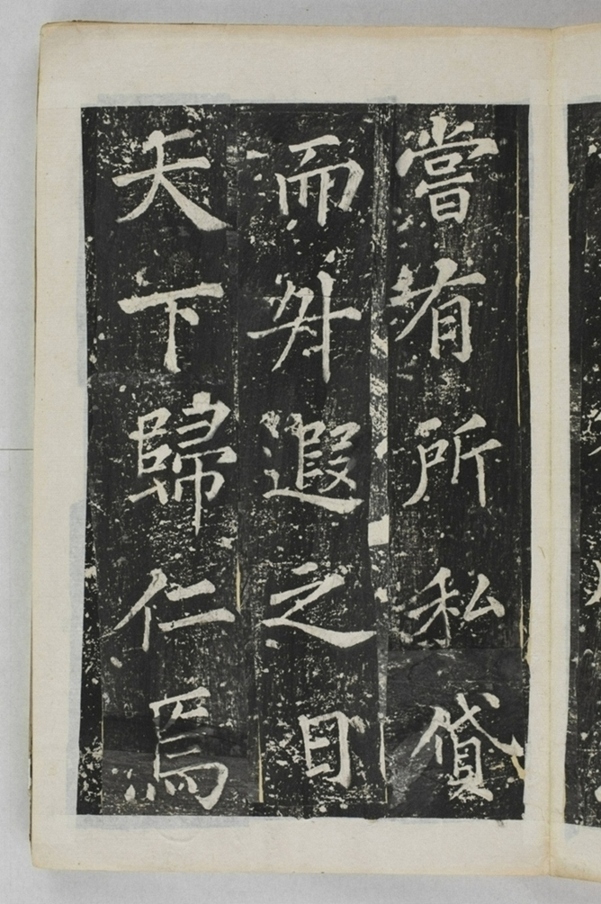 嘗有所私貸
而升遐之日
天下歸仁焉